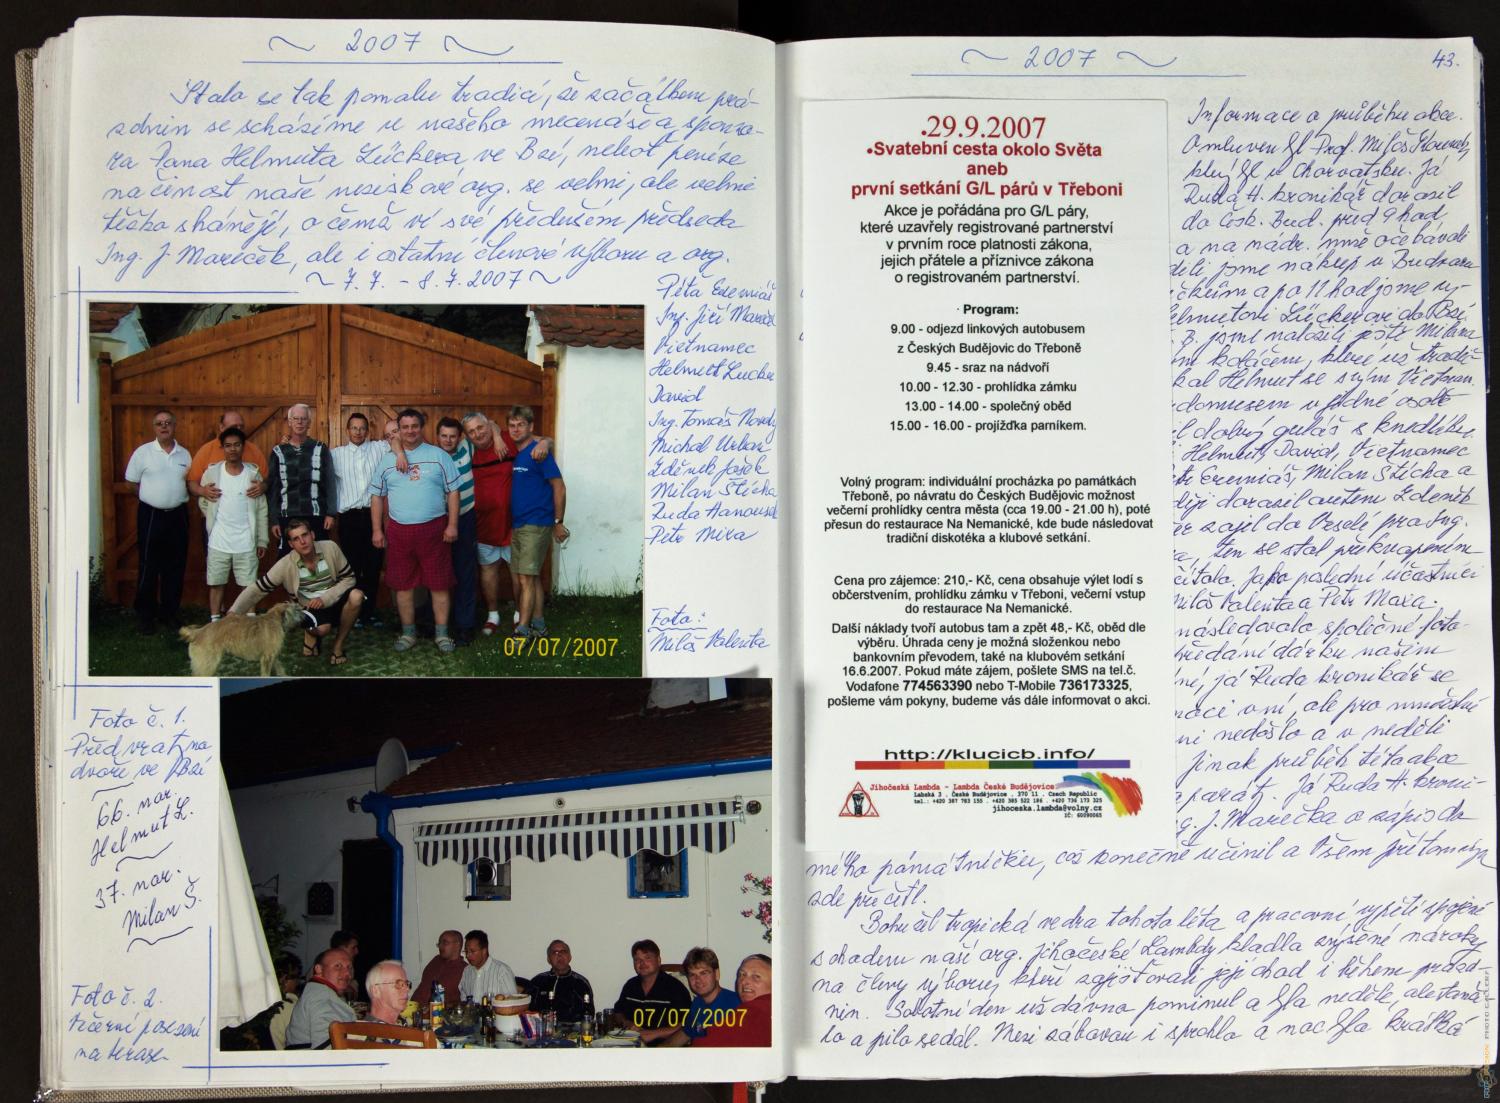 2007
Stalo se tak pomalu tradicí, že začátkem prá-
zdnin se scházíme u našeho mecenáše a sponzo-
ra Pana Helmuta Lückera ve Bzí, neboť peníze
na činost naší neziskové org. se velmi, ale velmi
těžko shánějí, o čemž ví své především předseda
Ing. J. Mareček, ale i ostatní členové výboru a org.
7.7. - 8.7.2007
Péťa Eremiáš
Ing. Jiří Mareček
Vietnamec
Helmutt Lucker
David
Ing. Tomáš Novotný
Michal Urban
Zdeněk Jošek
Milan Štícha
Ruda Hanousek
Petr Mixa
07/07/2007
Foto:
Miloš Valenta
Foto č. 1.
Před vraty na
dvoře ve Bzí
66. nar.
Helmut L.
37. nar.
Milan Š.
Foto č. 2.
Večerní posezení
na terase
07/07/2007
2007
43.
•29.9.2007
•Svatební cesta okolo Světa
aneb
první setkání G/L párů v Třeboni
Akce je pořádána pro G/L páry,
které uzavřely registrované partnerství
v prvním roce platnosti zákona,
jejich přátele a příznivce zákona
o registrovaném partnerství.
· Program:
9.00 - odjezd linkových autobusem
z Českých Budějovic do Třeboně
9.45 - sraz na nádvoří
10.00 - 12.30 - prohlídka zámku
13.00 - 14.00 - společný oběd
15.00 - 16.00 - projížďka parníkem.
Volný program: individuální procházka po památkách
Třeboně, po návratu do Českých Budějovic možnost
večerní prohlídky centra města (cca 19.00 - 21.00 h), poté
přesun do restaurace Na Nemanické, kde bude následovat
tradiční diskotéka a klubové setkání.
Cena pro zájemce: 210,- Kč, cena obsahuje výlet lodí s
občerstvením, prohlídku zámku v Třeboni, večerní vstup
do restaurace Na Nemanické.
Další náklady tvoří autobus tam a zpět 48,- Kč, oběd dle
výběru. Úhrada ceny je možná složenkou nebo
bankovním převodem, také na klubovém setkání
16.6.2007. Pokud máte zájem, pošlete SMS na tel.č.
Vodafone 774563390 nebo T-Mobile 736173325,
pošleme vám pokyny, budeme vás dále informovat o akci.
http://klucicb.info/
Jihočeská Lambda - Lambda České Budějovice
Labská 3 . České Budějovice . 370 11 . Czech Republic
tel.: +420 387 783 155 . +420 385 522 186 . +420 736 173 325
jihoceska.lambda@volny.cz
IČ: 60090065
Informace o průběhu akce.
Omluven Gl. Prof. Miloš
byl v Chorvatsku. Já
Ruda H. kronikář dorazil
do Česk. Bud. před 9 hod
a na nádr. mně očekávali
jsme nákup v Budvaru
a po 11 hod jsme vy-
Lückerovi do Bzí
B. jsme naložili ještě Milana
koláčem, které už tradič-
kal Helmut se svým Vietnam.
v jedné osobě
dobrý guláš s knedlíky.
Helmut, David, Vietnamec
Eremiáš, Milan Štícha a
ději dorazil autem Zdeněk
zajil do Veselí pro Ing.
ten se stal překvapením
Jako poslední účastníci
Miloš Valenta a Petr Maxa.
následovalo společné foto-
předání dárku našim
já Ruda kronikář se
ale pro množství
nedošlo a v neděli
Jinak průběh této akce
aparát. Já Ruda H. kroni-
Ing. J. Marečka o zápis do
mého památníčku, což konečně učinil a všem přítomným
zde přečetl.
Bohužel tropická vedra tohoto léta a pracovní vypětí spojené
s chodem naší org. Jihočeské Lambdy kladla zvýšené nároky
na členy výboru, kteří zajišťovali její chod i během prázd-
nin. Sobotní den už dávno pominul a byla neděle, ale stále
to a pilo se dál. Mezi zábavou i sprchlo a noc byla krátká